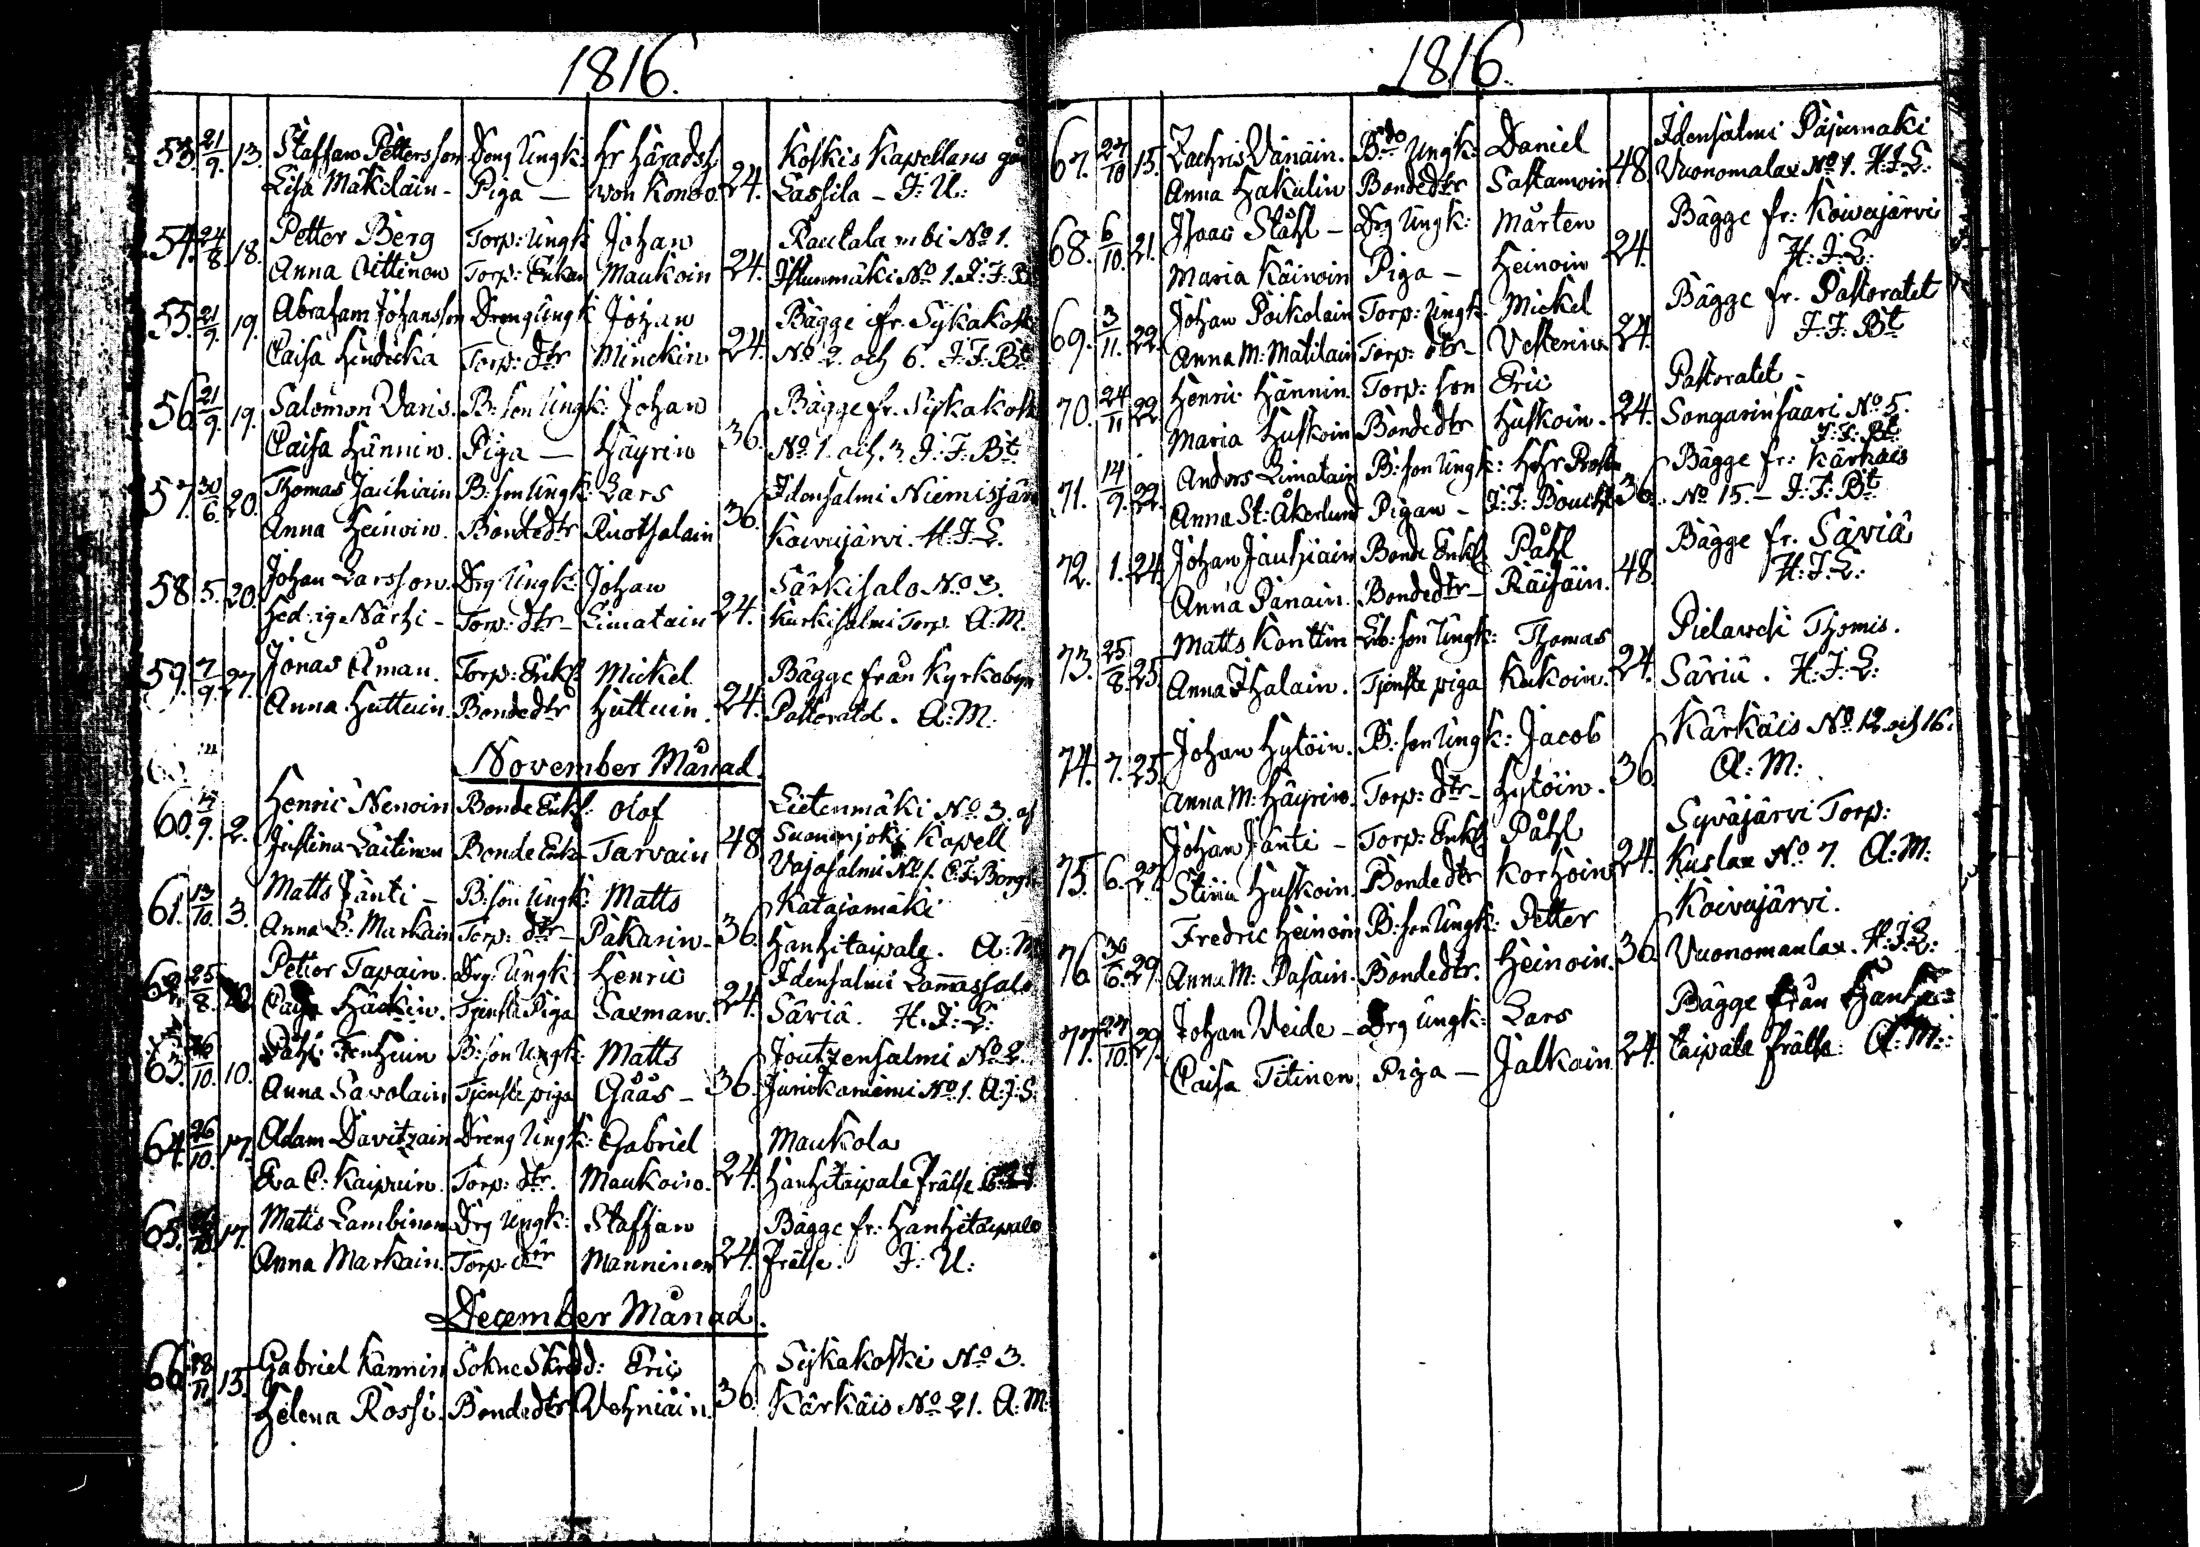 1816.
53. 21/9. 13. Staffan Pettersson Dreng Ungk: Hr Häradsh Koskis Kapellans
Lisa Mäkeläin - Piga - von Konow. 24. Lassila - J: U:
54. 24/8. 18. Petter Berg Torp: Ungk Johan Rautala No 1.
Anna Oittinen Torp: Enkan Maukoin 24. No 1. J: F: B
55. 21/9. 19. Abraham Johansson Dreng Ungk Johan Bägge fr. Sykäkoski
Caisa Hindicka Torp: dtr Minckin 24. No 2. och 6. J: F: Bt
56. 21/9. 19. Salomon Varis. B: son Ungk: Johan Bägge fr. Sykäkoski
Caisa Hännin. Piga - Häyrin 36. No 1. och 3. J: F: Bt
57. 30/6. 20. Thomas Jauhiain B: son Ungk: Lars Idensalmi Niemisjärvi
Anna Heinoin. Bondedtr Ruotsalain 36. Koivujärvi. H. J. L.
58. 5. 20. Johan Larsson. Drg Ungk: Johan Särkisalo No 3.
Hedvig Närhi - Torp: dtr - Limatain 24. Kurkisalmi Torp. A: M.
59. 7/9. 27. Jonas Åman. Torp: Enkl: Mickel Bägge från Kyrkobyn
Anna Huttuin. Bondedtr Huttuin. 24. Pastoratet. A: M:
November Månad.
60. 2. Henric Nenoin Bonde Enkl: Olof Lietenmäki No 3. af
Justina Laitinen Bonde Enka Tarvain 48 Suonenjoki Kapell
Vajasalmi No 1. C. J. Borg
61. 13/10. 3. Matts Jänti - B: son Ungk: Matts Katajamäki
Anna L: Markain Torp: dtr - Pakarin - 36. Hanhitaipale. A: M
62. 25/8. 10. Petter Tapain. Drg: Ungk: Henric Idensalmi Lamassalo
Caisa Häckin. Tjenste Piga Saxman. 24. Säviä. H. J. L:
63. 26/10. 10. Påhl B: son Ungk: Matts Joutzensalmi No 2.
Anna Savolain Tjenste piga Gåås - 36. No 1. A: J: S:
64. 26/10. 17. Adam Davitzain Dreng Ungk: Gabriel Maukola
Eva C: Kaipuin. Torp: dtr. Maukoin. 24. Hanhitaipale Frälse
65. 17. Matts Lambinen Drg Ungk: Staffan Bägge fr: Hanhitaipale
Anna Markain. Torp dtr Manninen 24. Frälse. J: U:
December Månad.
66. 18/11. 15. Gabriel Kännin Sokne Skredd: Eric Sykäkoski No 3.
Helena Rossi. Bondedtr Vehniäin. 36. Kärkäis No 21. A: M:
1816.
67. 27/10. 15. Zachris Vänäin. Bde Ungk: Daniel Idensalmi Pajumäki
Anna Hakulin Bondedtr Sastamoin 48. Vuonomalax No 1. H. J. L:
68. 6/10. 21. Isaac Ståhl - Drg Ungk: Mårten Bägge fr: Koivujärvi
Maria Käinoin Piga - Heinoin 24. H: J: L:
69. 3/11. 22. Johan Poikolain Torp: Ungk: Mickel Bägge fr. Pastoratet
Anna M: Matilain Torp: dtr - Vesterin. 24. J: F: Bt
70. 24/11. 22. Henric Hännin Torp: son Eric Pastoratet -
Maria Huskoin Bondedtr Huskoin. 24. Songarinsaari No 5.
J: F: Bt:
71. 14/9. 22. Anders Limatain B: son Ungk: HHr Prosten Bägge fr: Kärkäis
Anna St: Åkerlund Pigan - J: F: Boucht 36. No 15. - J: F: Bt
72. 1. 24. Johan Jauhiain Bonde Enkl Påhl Bägge fr. Säviä
Anna Pänäin. Bondedtr - Räisäin. 48. H: J: L:
73. 25/8. 25. Matts Konttin Lb: son Ungk: Thomas Pielavesi Thomis.
Anna Ihalain. Tjenste piga Kukoin. 24. Säviä. H: J: L:
74. 7. 25. Johan Hytöin. B: son Ungk: Jacob Kärkäis No 12 och 16.
Anna M: Häyrin. Torp: dtr - Hytöin. 36. A: M:
75. 6. 27. Johan Jänti - Torp: Enkl Påhl Syväjärvi Torp:
Stina Huskoin. Bondedtr Korhoin 24. Kuslax No 7. A: M:
76. 30/6. 29. Fredric Heinoin B: son Ungk: Petter Koivujärvi.
Anna M: Pasain. Bondedtr. Heinoin. 36. Vuonomanlax. H: J: L:
77. 27/10. 29. Johan Weide - Drg Ungk: Lars Bägge från Hanhi=
Caisa Titinen Piga - Jalkain 24. taipale Frälse. A: M: